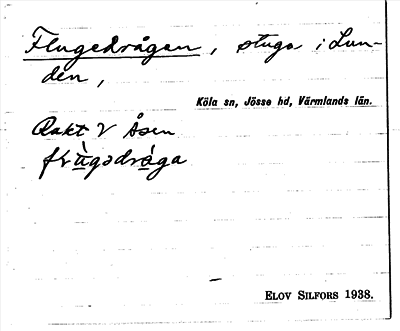 Flugedrågan, stuga i Lun-
den,
Köla sn, Jösse hd, Värmlands län.
Rakt V Åsen
flùgədråga
ELOV SILFORS 1938.